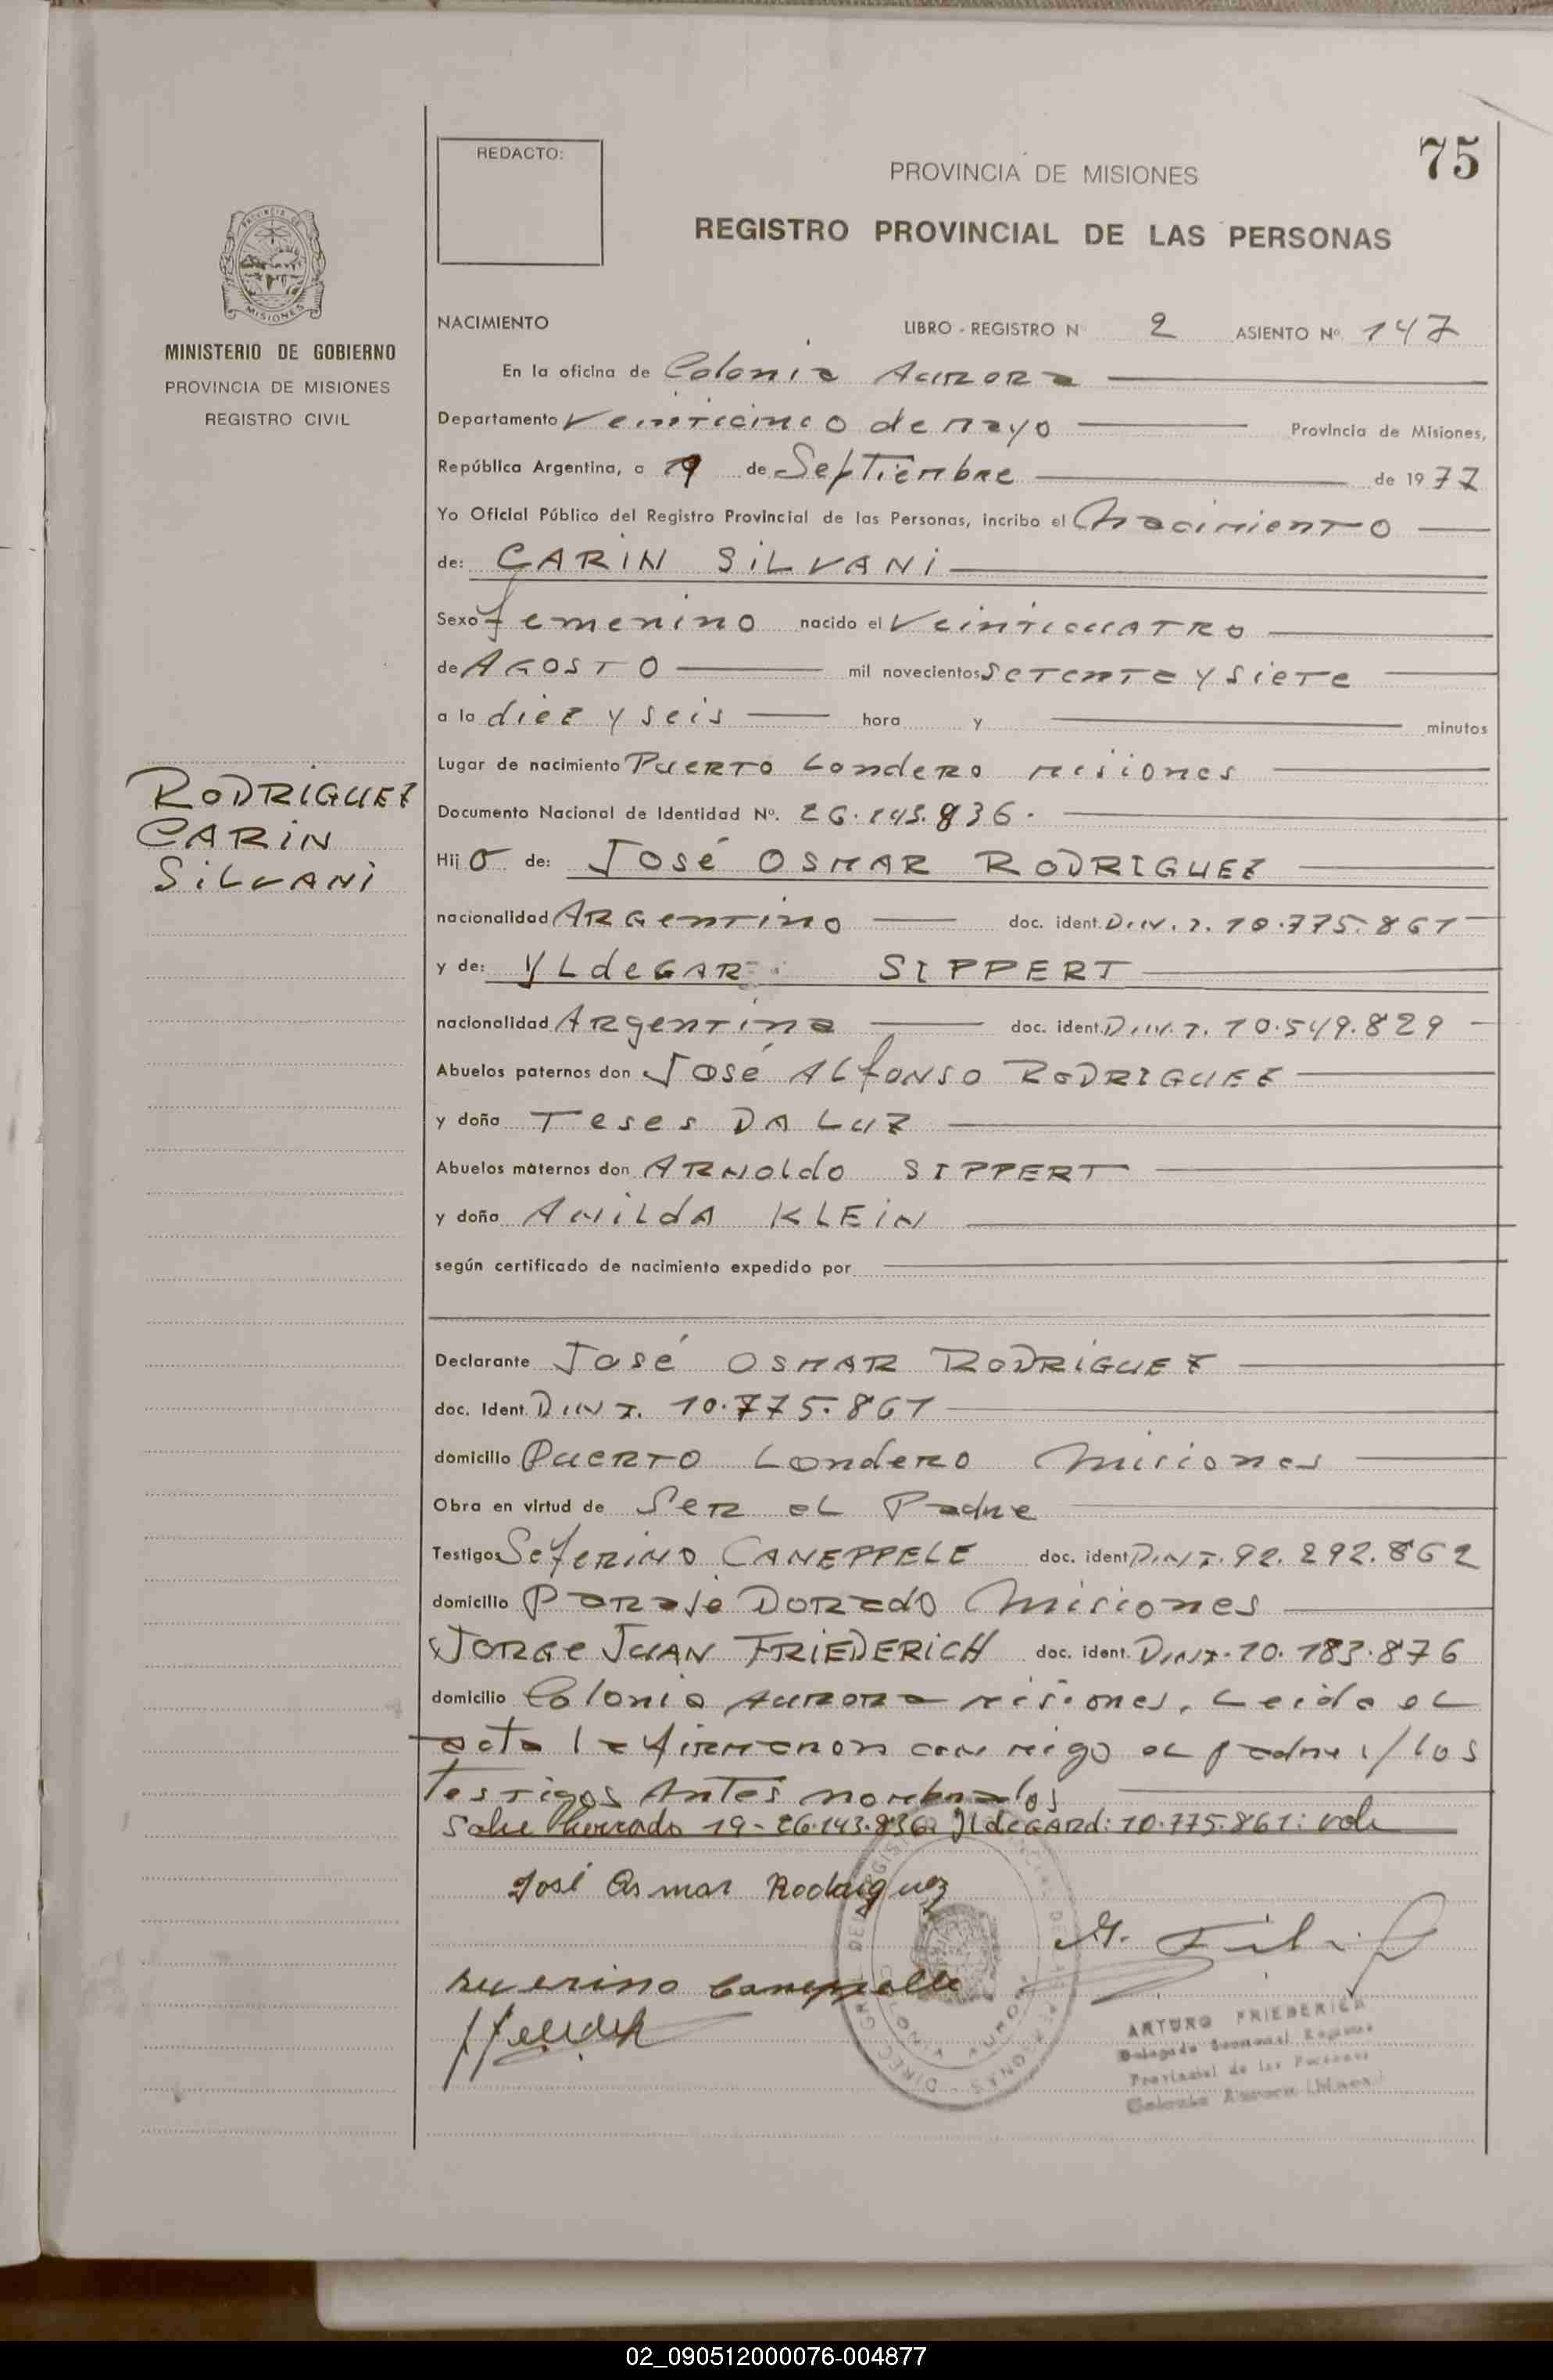 REDACTO:
75
PROVINCIA DE MISIONES
REGISTRO PROVINCIAL DE LAS PERSONAS
MISIONES
MINISTERIO DE GOBIERNO
PROVINCIA DE MISIONES
REGISTRO CIVIL
RODRIGUEZ
CARIN
SILVANI
NACIMIENTO LIBRO - REGISTRO N 2 ASIENTO Nº. 147
En la oficina de Colonia Aurora
Departamento Veinticinco de Mayo Provincia de Misiones,
República Argentina, a 19 de Septiembre de 1977
Yo Oficial Público del Registro Provincial de las Personas, incribo el Nacimiento
de: CARIN SILVANI
Sexo femenino nacido el Veinticuatro
de AGOSTO mil novecientos Setenta y Siete
a la diez y seis hora y minutos
Lugar de nacimiento Puerto Londero Misiones
Documento Nacional de Identidad Nº. 26.143.836.
Hij de: José OSMAR RODRIGUEZ
nacionalidad Argentino doc. ident. D.N.I. 10.775.861
y de: YLdeGAR SIPPERT
nacionalidad Argentina doc. ident. D.N.I. 10.549.829
Abuelos paternos don José Alfonso RODRIGUEZ
y doña Teses DA LUZ
Abuelos maternos don ARNOldo SIPPERT
y doña ANILdA KLEIN
según certificado de nacimiento expedido por
Declarante José OSMAR RODRIGUEZ
doc. Ident. D.N.I. 10.775.861
domicilio Puerto Londero Misiones
Obra en virtud de Ser el Padre
Testigos Seferino CANEPPELE doc. ident D.N.I. 92.292.862
domicilio Paraje Dorado Misiones
Jorge Juan FRIEDERICH doc. ident. D.N.I. 10.183.876
domicilio Colonia Aurora Misiones. Leida el
acta la firmaron con migo el padre y los
Testigos Antes nombrados
Sobre herrado 19-26.143.836: YldeGARd: 10.775.861: vale
José Osmar Rodriguez
ARTURO FRIEDERICH
Delegado Seccional Registro
Provincial de las Personas
Colonia Aurora (Mnes.)
02_090512000076-004877